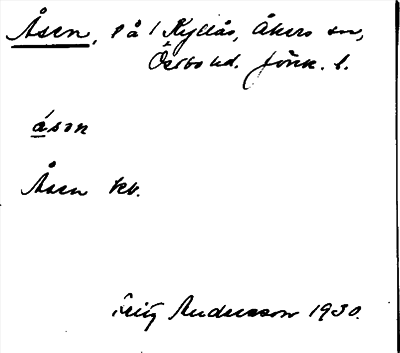 Åsen, på 1 Kyllås, Åkers sn,
Östbo hd. Jönk. l.
åsən
Åsen kb.
Fritz Andersson 1930.